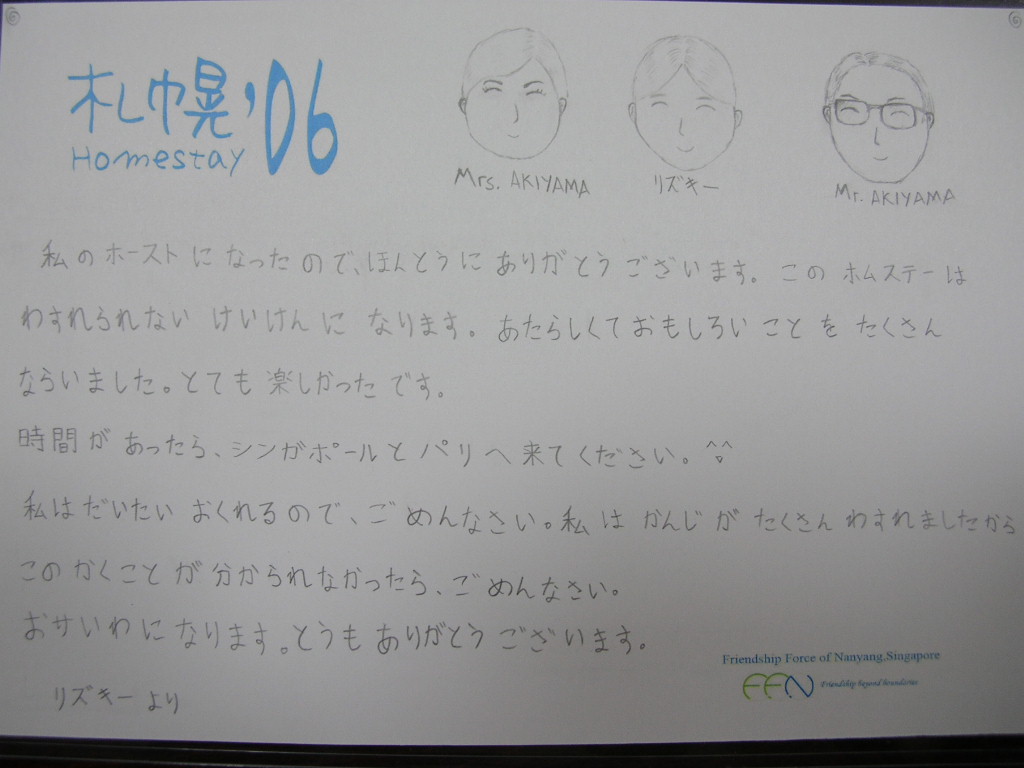 札幌'06
Homestay
Mrs. AKIYAMA
リズキー
Mr. AKIYAMA
私のホーストになったので、ほんとうにありがとうございます。このホムステーは
わすれられないけいけんになります。あたらしくておもしろいことをたくさん
ならいました。とても楽しかったです。
時間があったら、シンガポールとパリへ来てください。^▽^
私はだいたいおくれるので、ごめんなさい。私はかんじがたくさんわすれましたから
このかくことが分かられなかったら、ごめんなさい。
おサいわになります。とうもありがとうございます。
リズキーより
Friendship Force of Nanyang,Singapore
FFN Friendship beyond boundaries